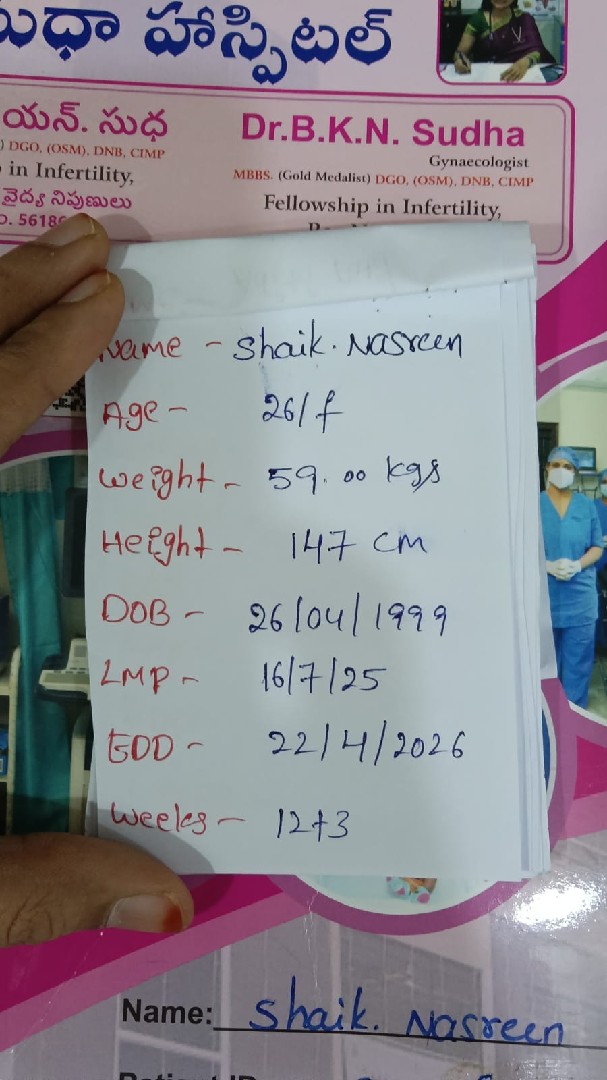 సుధా హాస్పిటల్
యన్. సుధ
DGO, (OSM), DNB, CIMP
in Infertility,
వైద్య నిపుణులు
Dr.B.K.N. Sudha
Gynaecologist
MBBS. (Gold Medalist) DGO, (OSM), DNB, CIMP
Fellowship in Infertility,
Name - Shaik. Nasreen
Age - 26/f
Weight - 59.00 kgs
Height - 147 cm
DOB - 26/04/1999
LMP - 16/7/25
EDD - 22/4/2026
Weeks - 12+3
Name: Shaik. Nasreen